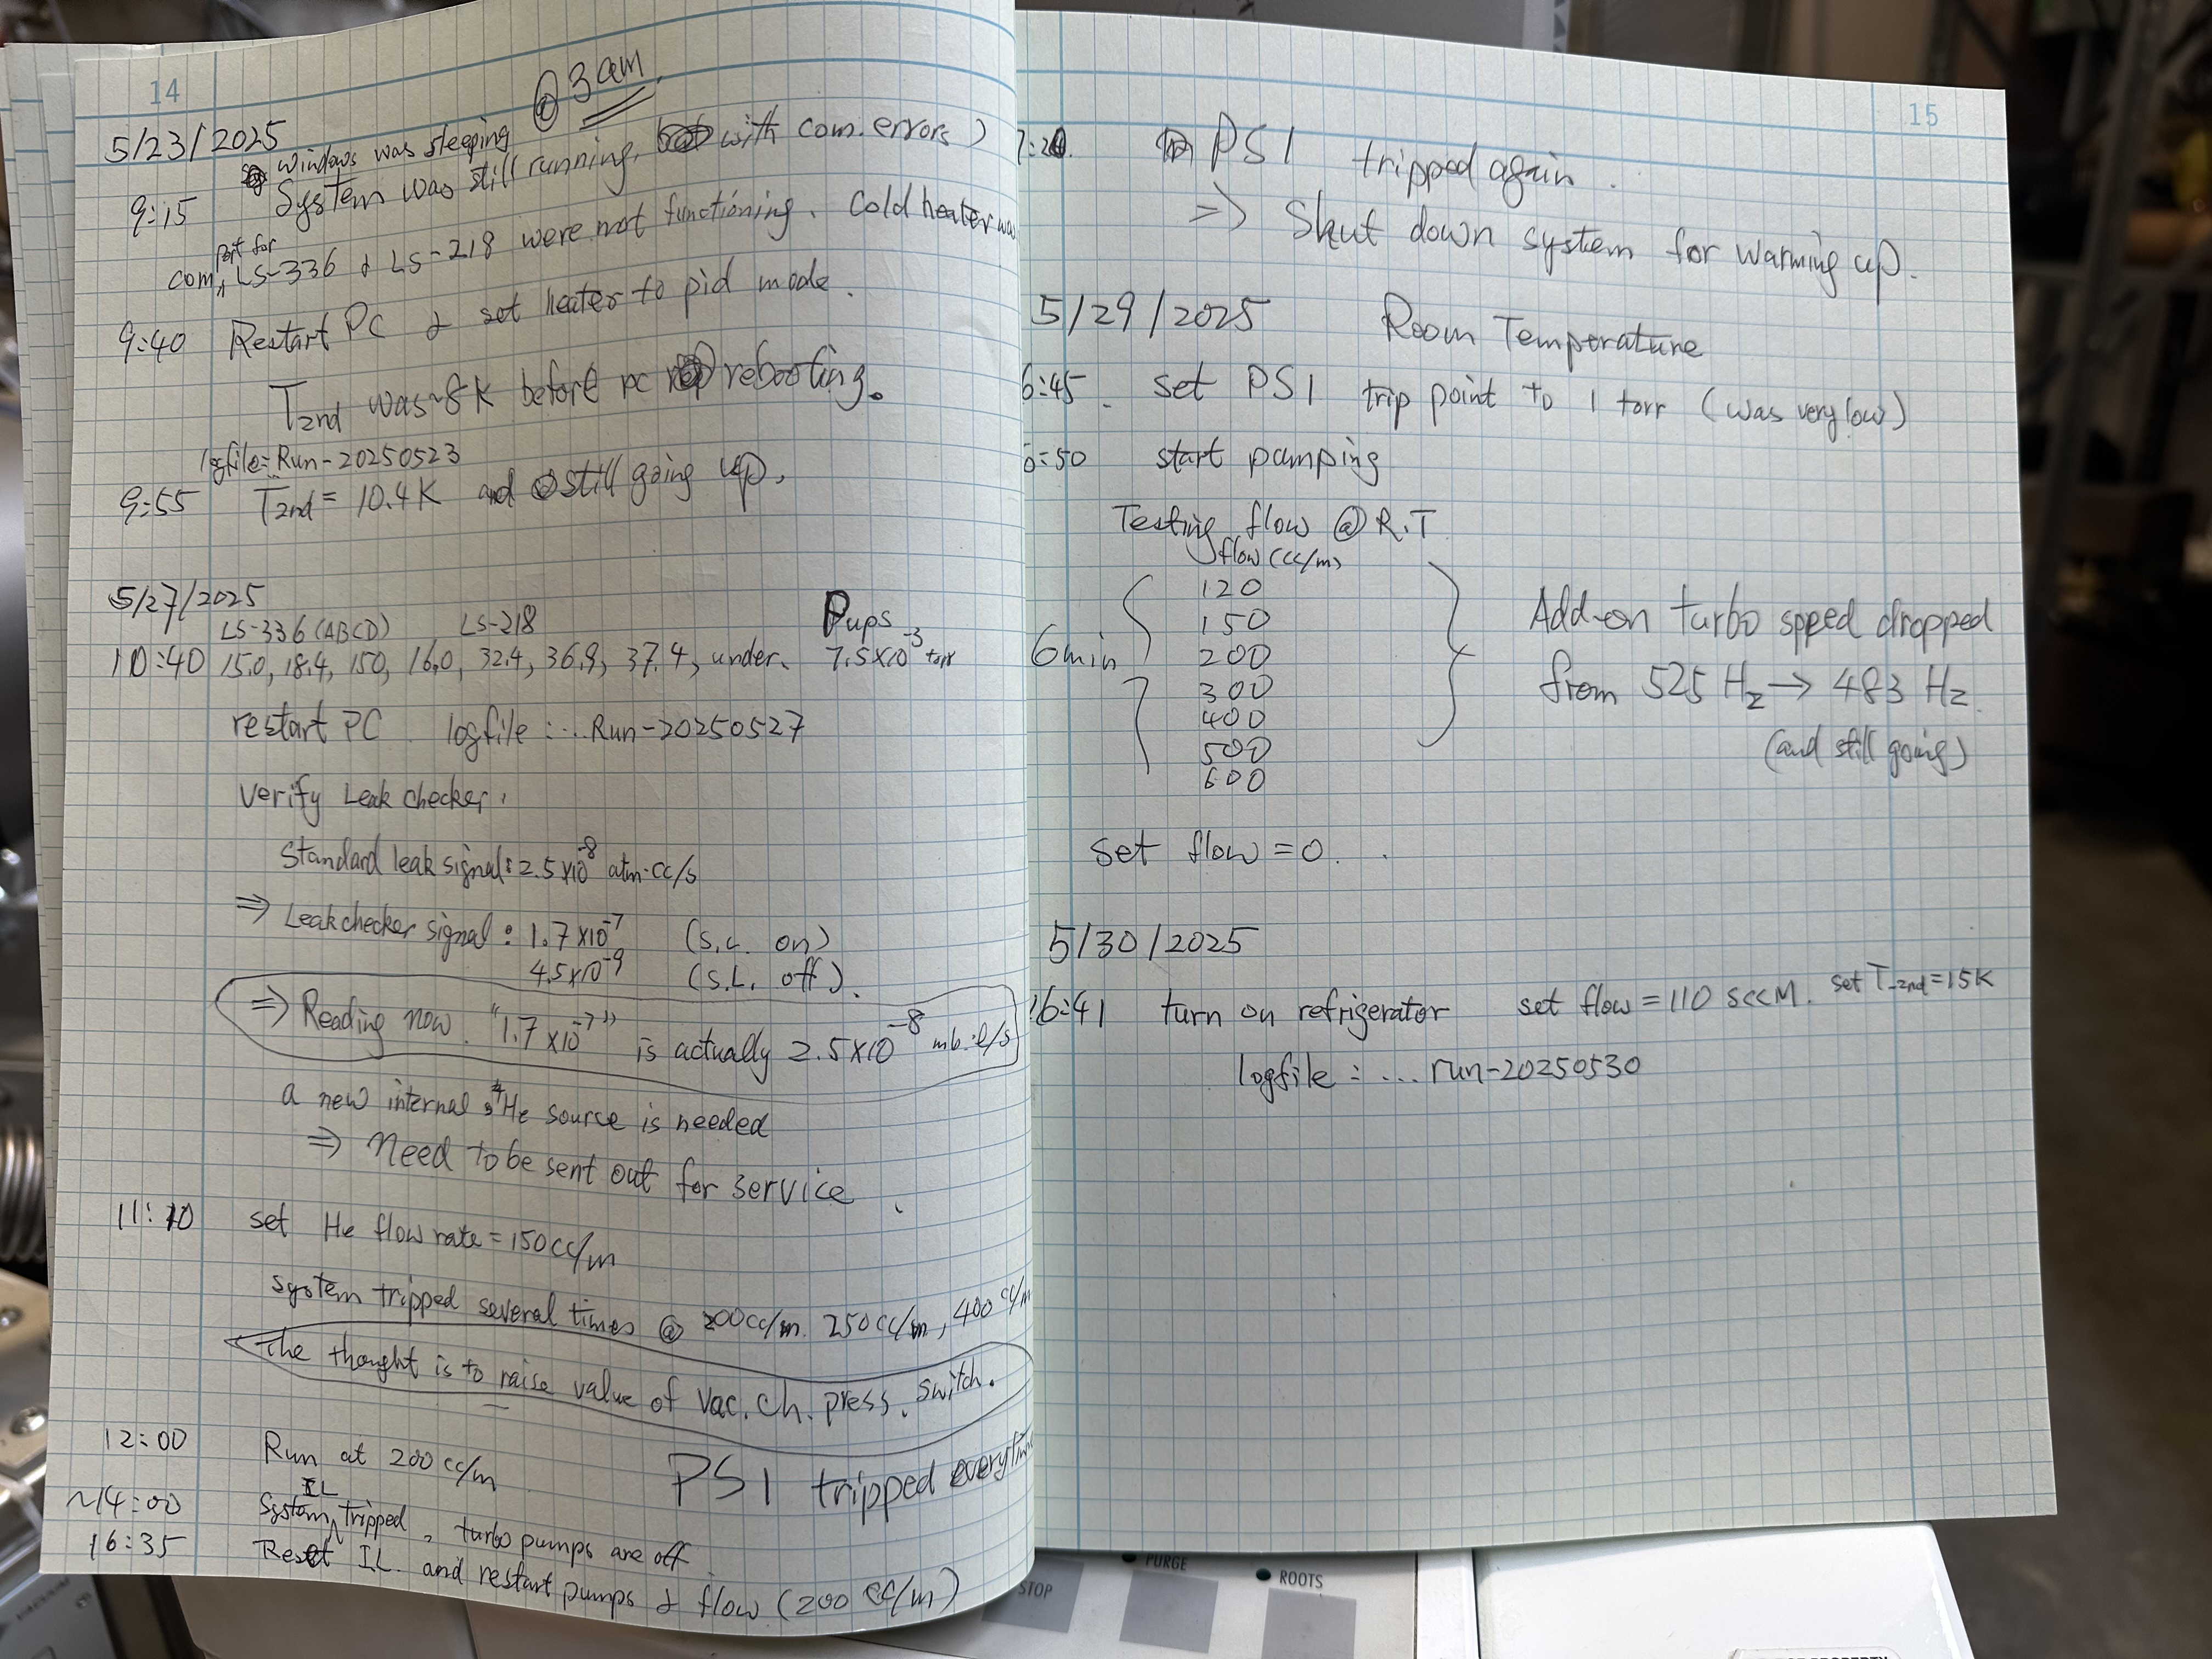 14
@ 3 am
5/23/2025
windows was sleeping
9:15 System was still running, with com. errors)
port for
com, LS-336 & LS-218 were not functioning. Cold heater was
9:40 Restart PC & set heater to pid mode.
T2nd was ~8K before pc rebooting.
logfile: Run-20250523
9:55 T2nd = 10.4K and still going up.
5/27/2025
LS-336 (ABCD) LS-218 Pups
10:40 15.0, 18.4, 150, 16.0, 32.4, 36.9, 37.4, under. 7.5×10⁻³ torr
restart PC. logfile: ...Run-20250527
Verify Leak checker.
Standard leak signal: 2.5×10⁻⁸ atm·cc/s
⇒ Leak checker signal: 1.7×10⁻⁷ (S.L. on)
4.5×10⁻⁹ (S.L. off).
⇒ Reading now "1.7×10⁻⁷" is actually 2.5×10⁻⁸ mb·l/s
a new internal ⁴He source is needed
⇒ Need to be sent out for service.
11:10 set He flow rate = 150 cc/m
system tripped several times @ 200 cc/m. 250 cc/m, 400 cc/m
The thought is to raise value of Vac. Ch. press. switch.
12:00 Run at 200 cc/m
PS1 tripped everytim
IL
~14:00 System tripped, turbo pumps are off
16:35 Reset IL. and restart pumps & flow (200 cc/m)
15
PS1 tripped again.
⇒ Shut down system for warming up.
5/29/2025 Room Temperature
6:45 set PS1 trip point to 1 torr (was very low)
6:50 start pumping
Testing flow @ R.T
flow (cc/m)
120
150
6min 200
300
400
500
600
Add-on turbo speed dropped
from 525 Hz → 483 Hz
(and still going)
set flow = 0.
5/30/2025
16:41 turn on refrigerator set flow = 110 SCCM. set T-2nd = 15K
logfile: ... run-20250530
STOP
PURGE
ROOTS